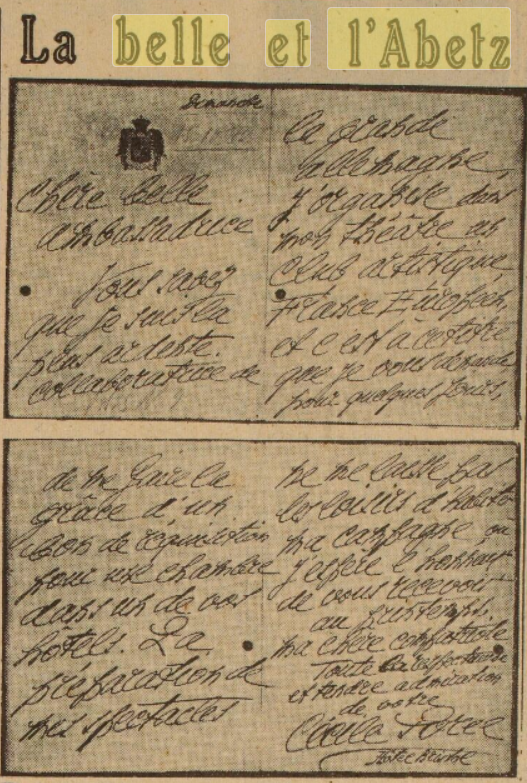 La belle et l'Abetz
Dimanche
Chère belle
ambassadrice
Vous savez
que je suis la
plus ardente
collaboratrice de
la grande
allemagne,
j'organise dans
mon théâtre un
Club artistique
France Européen
et c'est à ce titre
que je vous demande
pour quelques jours,
de me faire la
grâce d'un
bon de réquisition
pour une chambre
dans un de vos
hôtels. La
préparation de
mes spectacles
ne me laisse pas
les loisirs d'habiter
ma campagne où
j'espère l'honneur
de vous recevoir
au printemps,
ma chère compatriote
Toute la respectueuse
et tendre admiration
de votre
Cécile Sorel